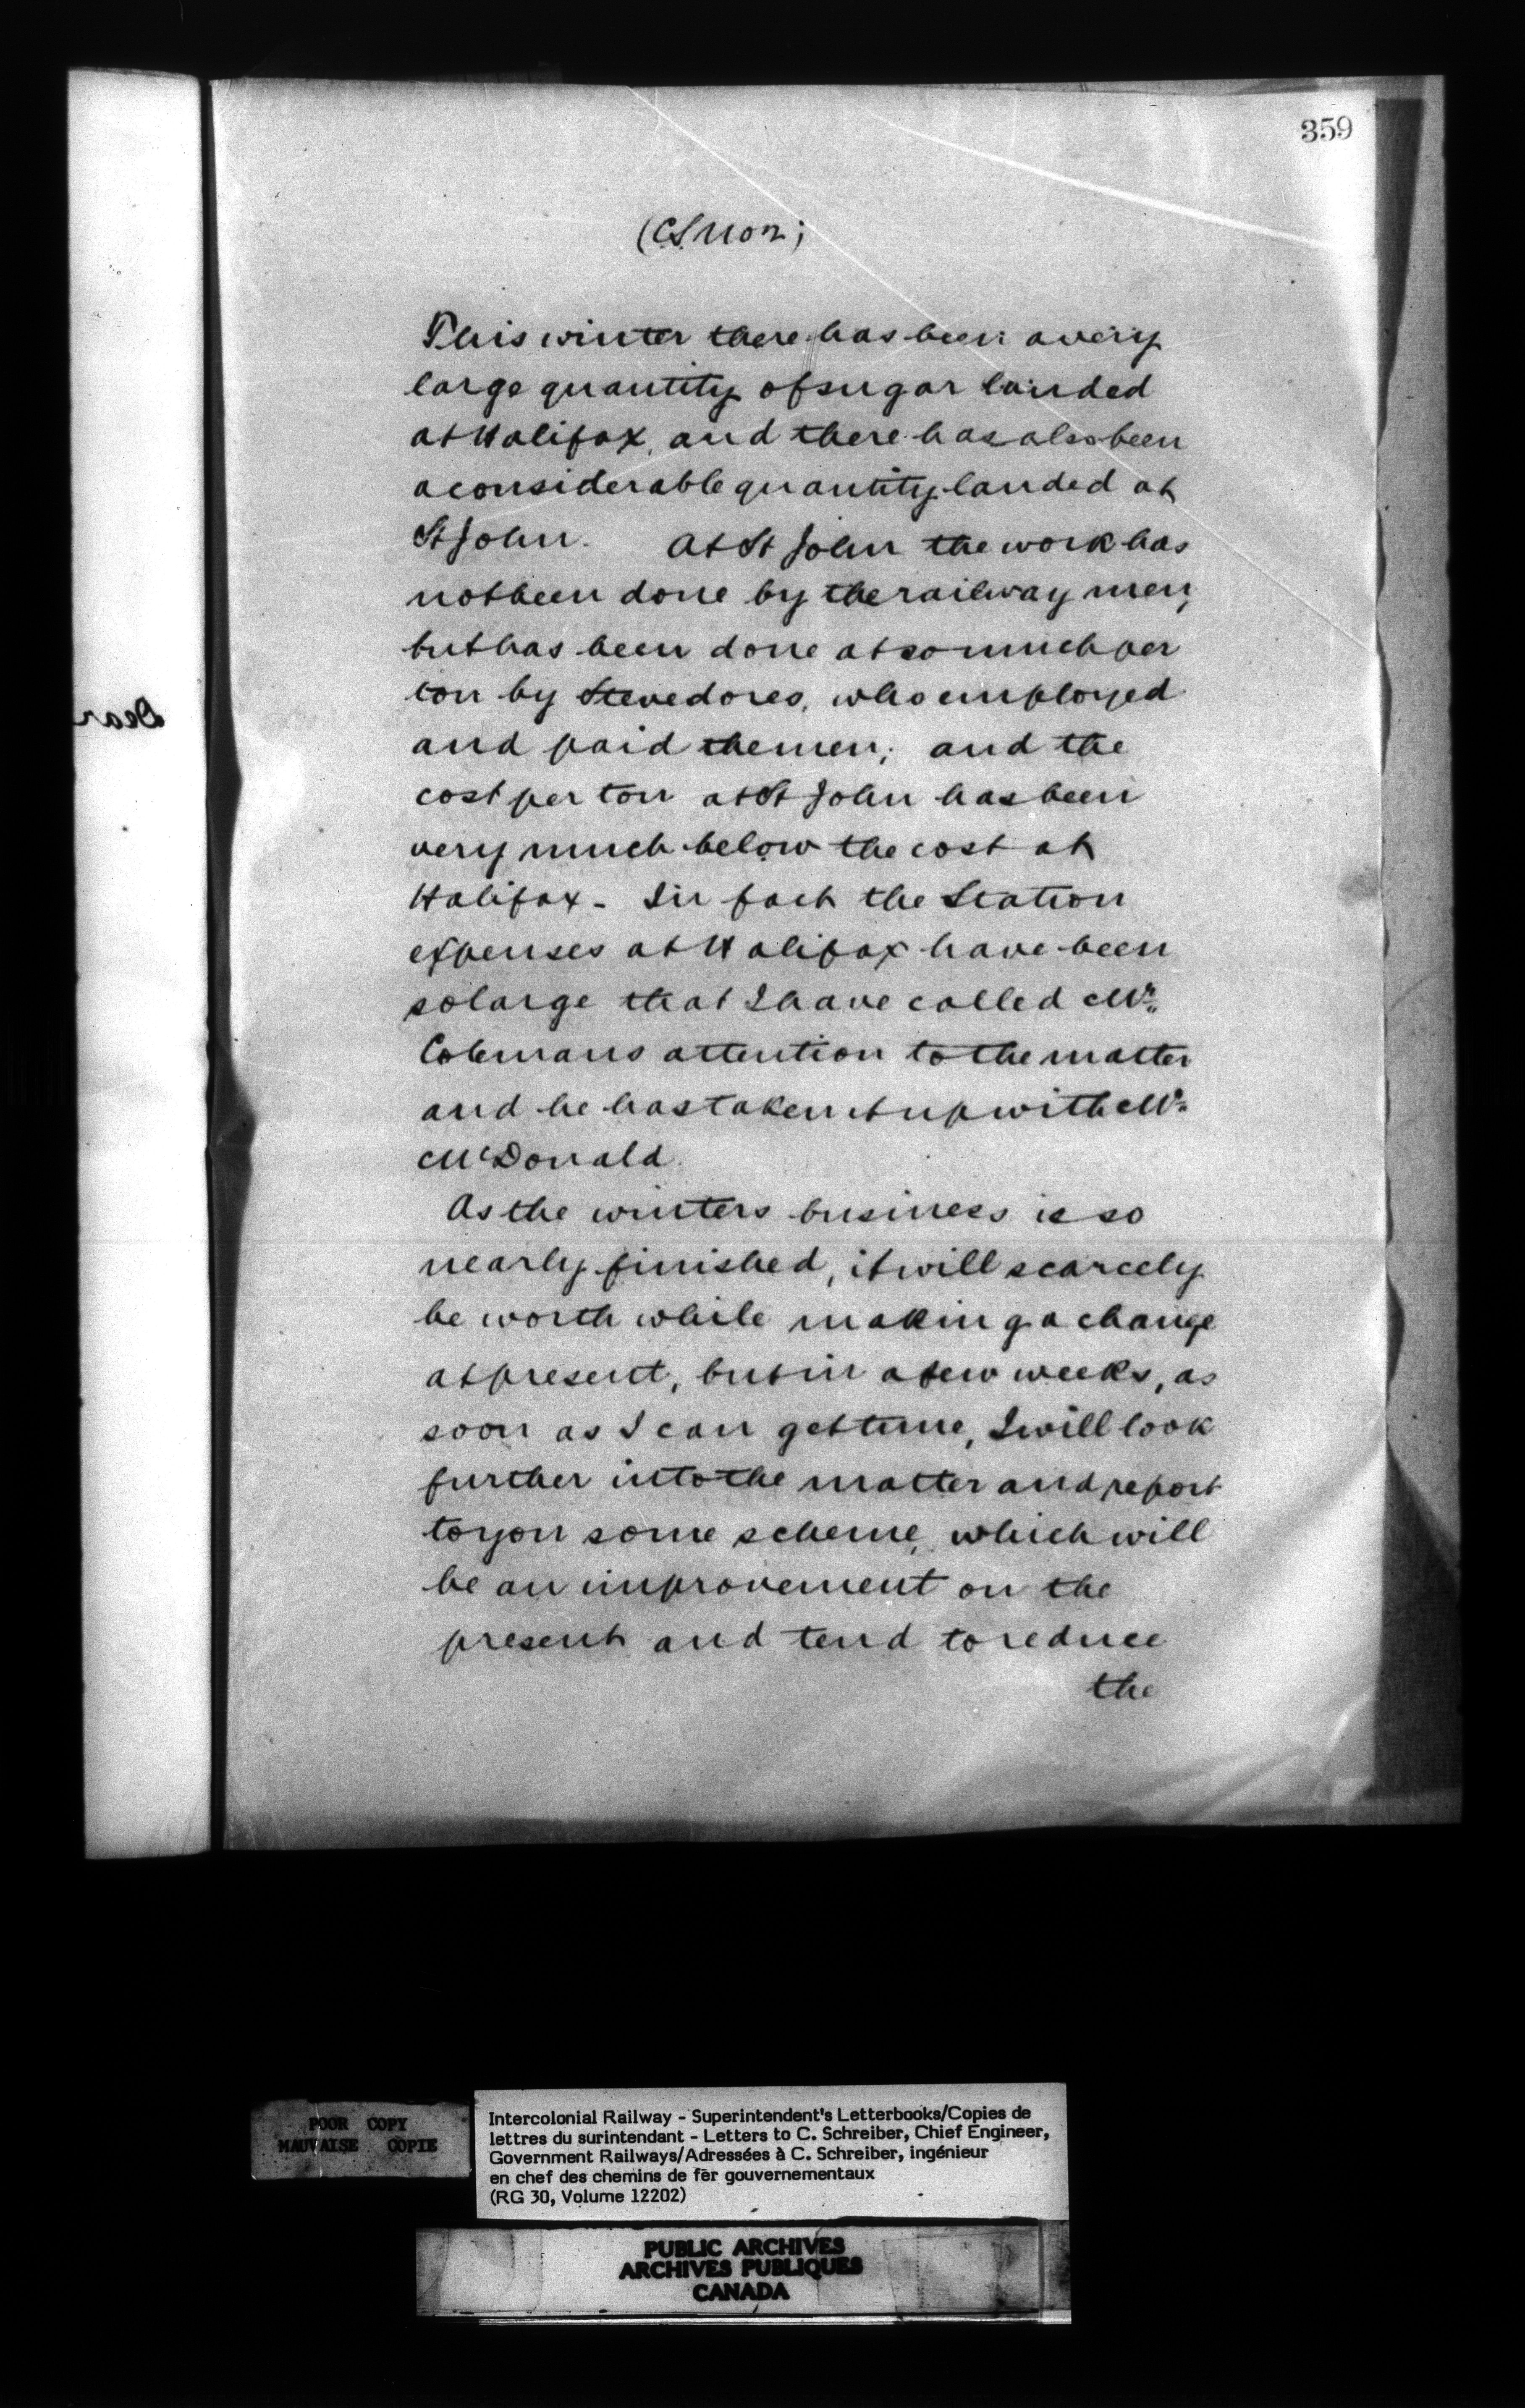 359
This winter there has been a very
large quantity of sugar landed
at Halifax, and there has also been
a considerable quantity landed at
St John. At St John the work has
not been done by the railway men,
but has been done at so much per
ton by Stevedores, who employed
and paid the men; and the
cost per ton at St John has been
very much below the cost at
Halifax - In fact the Station
expenses at Halifax have been
so large that I have called Mr.
Colemans attention to the matter
and he has taken it up with Mr.
McDonald.
As the winters business is so
nearly finished, it will scarcely
be worth while making a change
at present, but in a few weeks, as
soon as I can get time, I will look
further into the matter and report
to you some scheme, which will
be an improvement on the
present and tend to reduce
the
Dear
POOR COPY
MAUVAISE COPIE
Intercolonial Railway - Superintendent's Letterbooks/Copies de
lettres du surintendant - Letters to C. Schreiber, Chief Engineer,
Government Railways/Adressées à C. Schreiber, ingénieur
en chef des chemins de fer gouvernementaux
(RG 30, Volume 12202)
PUBLIC ARCHIVES
ARCHIVES PUBLIQUES
CANADA